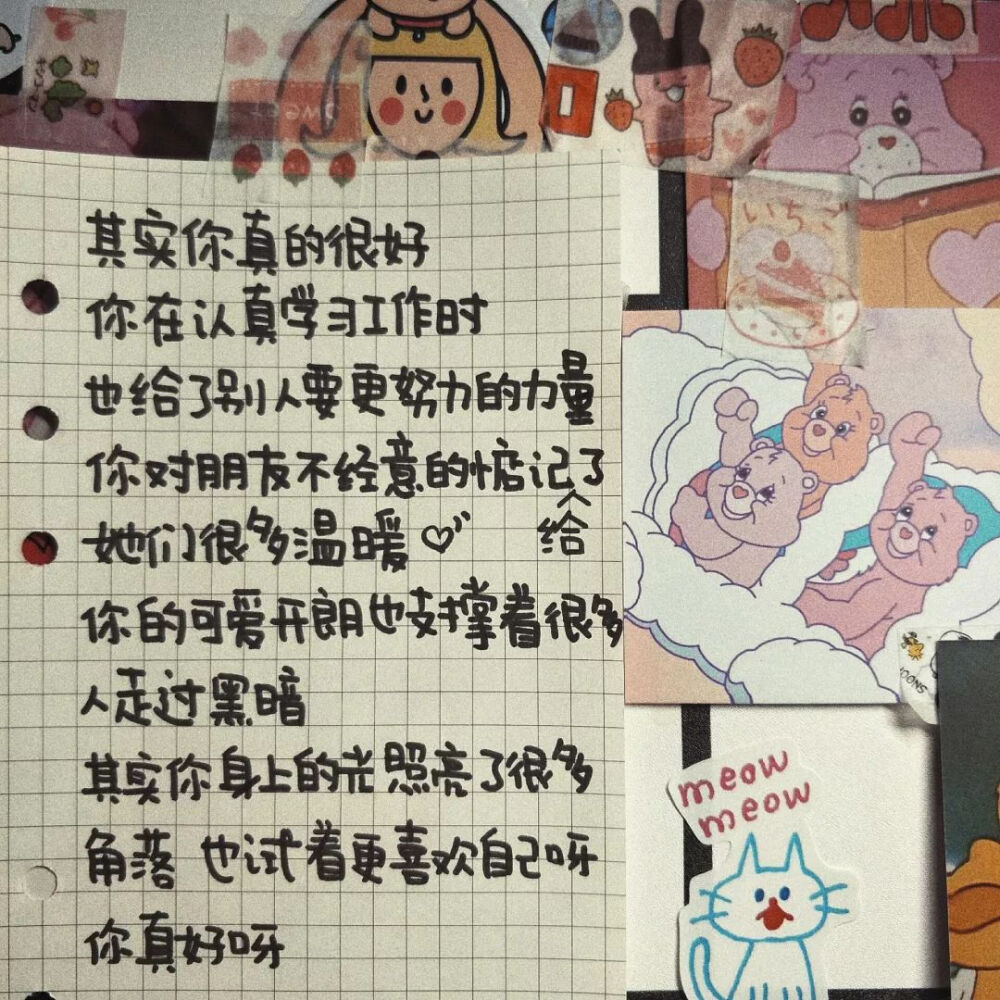 其实你真的很好
你在认真学习工作时
也给了别人要更努力的力量
你对朋友不经意的惦记给了
她们很多温暖♡
你的可爱开朗也支撑着很多
人走过黑暗
其实你身上的光照亮了很多
角落 也试着更喜欢自己呀
你真好呀
いちご
meow
meow